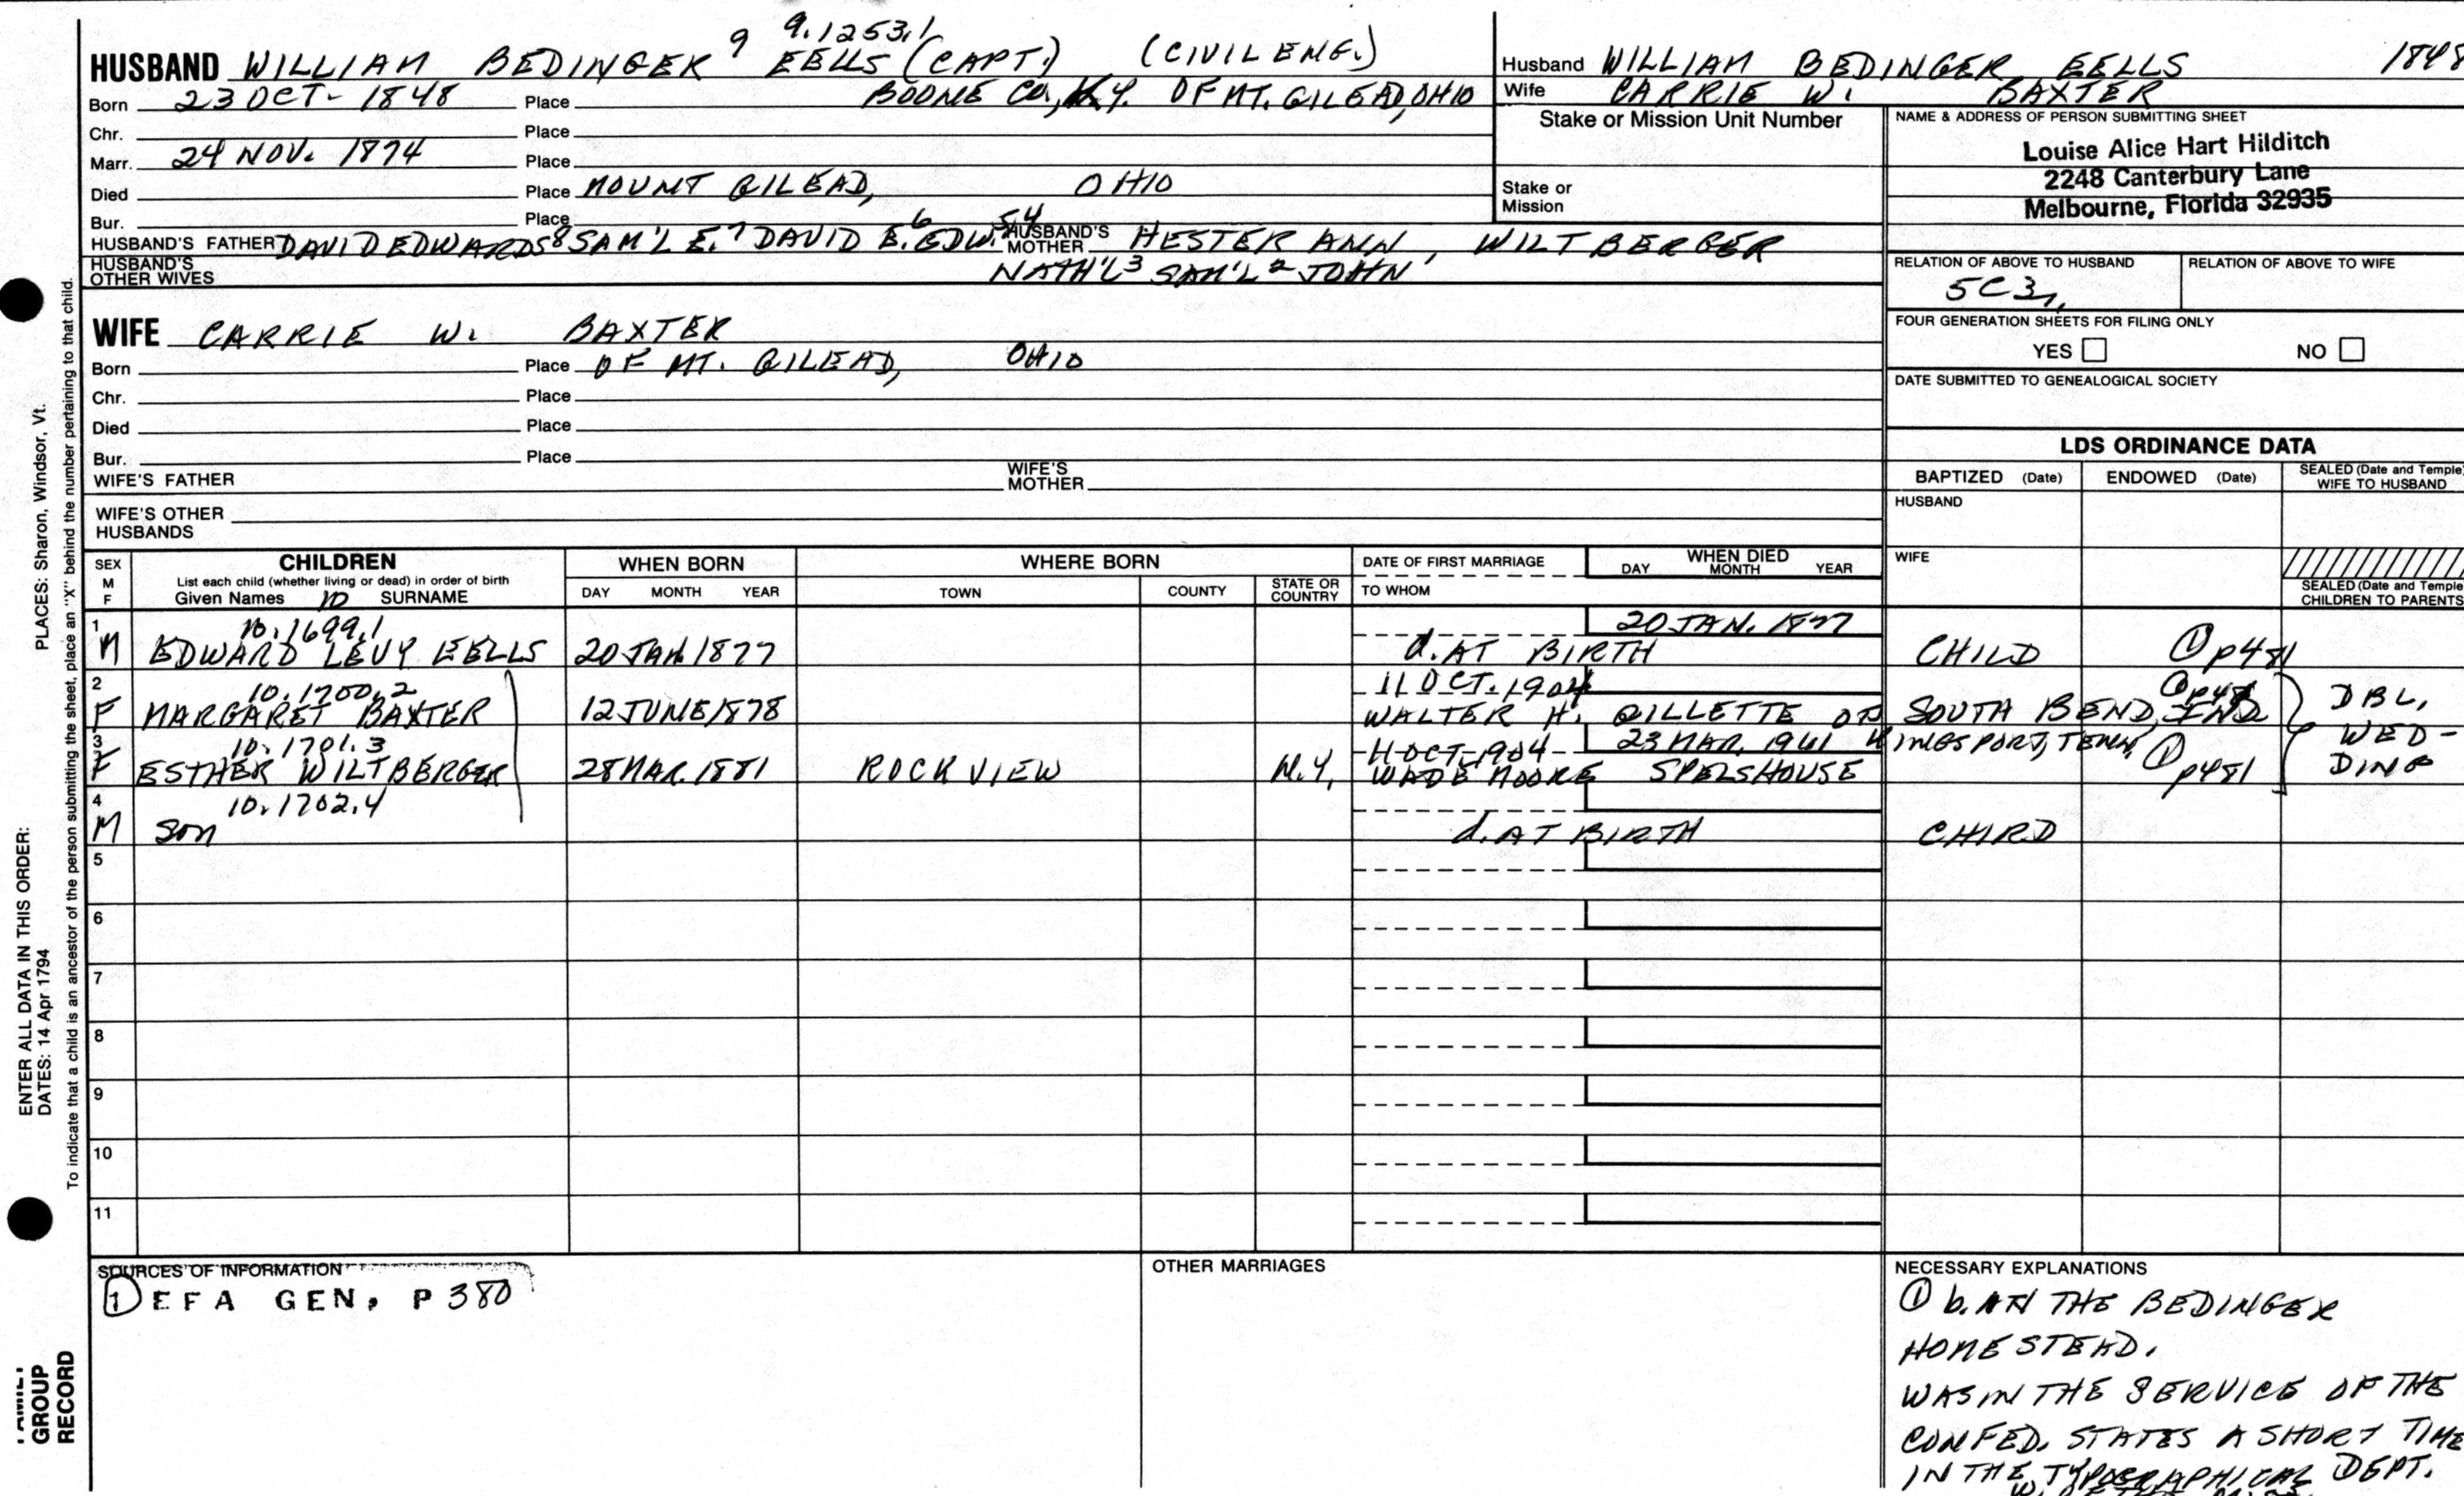 9.1253.1
HUSBAND WILLIAM BEDINGER 9 EELLS (CAPT.) (CIVIL ENG.)
Born 23 OCT- 1848 Place BOONE CO., KY. OF MT. GILEAD, OHIO
Chr. Place
Marr. 24 NOV. 1874 Place
Died Place MOUNT GILEAD, OHIO
Bur. Place
HUSBAND'S FATHER DAVID EDWARDS 8 SAM'L E. 7 DAVID E. 6 EDW. 5 4 HUSBAND'S MOTHER HESTER ANN WILTBERGER
HUSBAND'S OTHER WIVES NATH'L 3 SAM'L 2 JOHN 1
WIFE CARRIE W. BAXTER
Born Place OF MT. GILEAD, OHIO
Chr. Place
Died Place
Bur. Place
WIFE'S FATHER WIFE'S MOTHER
WIFE'S OTHER HUSBANDS
Husband WILLIAM BEDINGER EELLS 1848
Wife CARRIE W. BAXTER
Stake or Mission Unit Number
Stake or Mission
NAME & ADDRESS OF PERSON SUBMITTING SHEET
Louise Alice Hart Hilditch
2248 Canterbury Lane
Melbourne, Florida 32935
RELATION OF ABOVE TO HUSBAND RELATION OF ABOVE TO WIFE
5C3r.
FOUR GENERATION SHEETS FOR FILING ONLY
YES NO
DATE SUBMITTED TO GENEALOGICAL SOCIETY
LDS ORDINANCE DATA
BAPTIZED (Date) ENDOWED (Date) SEALED (Date and Temple) WIFE TO HUSBAND
HUSBAND
WIFE
SEALED (Date and Temple) CHILDREN TO PARENTS
SEX M F CHILDREN WHEN BORN WHERE BORN DATE OF FIRST MARRIAGE WHEN DIED
List each child (whether living or dead) in order of birth
Given Names 10 SURNAME DAY MONTH YEAR TOWN COUNTY STATE OR COUNTRY TO WHOM DAY MONTH YEAR
1 10.1699.1 20 JAN. 1877
M EDWARD LEVY EELLS 20 JAN. 1877 d. AT BIRTH CHILD ① p481
2 10.1700.2 11 OCT. 1904
F MARGARET BAXTER 12 JUNE 1878 WALTER H. GILLETTE OF SOUTH BEND, IND ① p481 DBL,
3 10.1701.3 11 OCT. 1904 23 MAR. 1961 KINGSPORT, TENN. WED-
F ESTHER WILTBERGER 28 MAR. 1881 ROCK VIEW N.Y. WADE MOORE SPELSHOUSE ① p481 DING
4 10.1702.4
M SON d. AT BIRTH CHIRD
5
6
7
8
9
10
11
SOURCES OF INFORMATION
① EFA GEN, P 380
OTHER MARRIAGES
NECESSARY EXPLANATIONS
① b. AT THE BEDINGER
HOMESTEAD.
WAS IN THE SERVICE OF THE
CONFED. STATES A SHORT TIME
IN THE TYPOGRAPHICAL DEPT.
ENTER ALL DATA IN THIS ORDER:
DATES: 14 Apr 1794 PLACES: Sharon, Windsor, Vt.
To indicate that a child is an ancestor of the person submitting the sheet, place an "X" behind the number pertaining to that child.
FAMILY
GROUP
RECORD